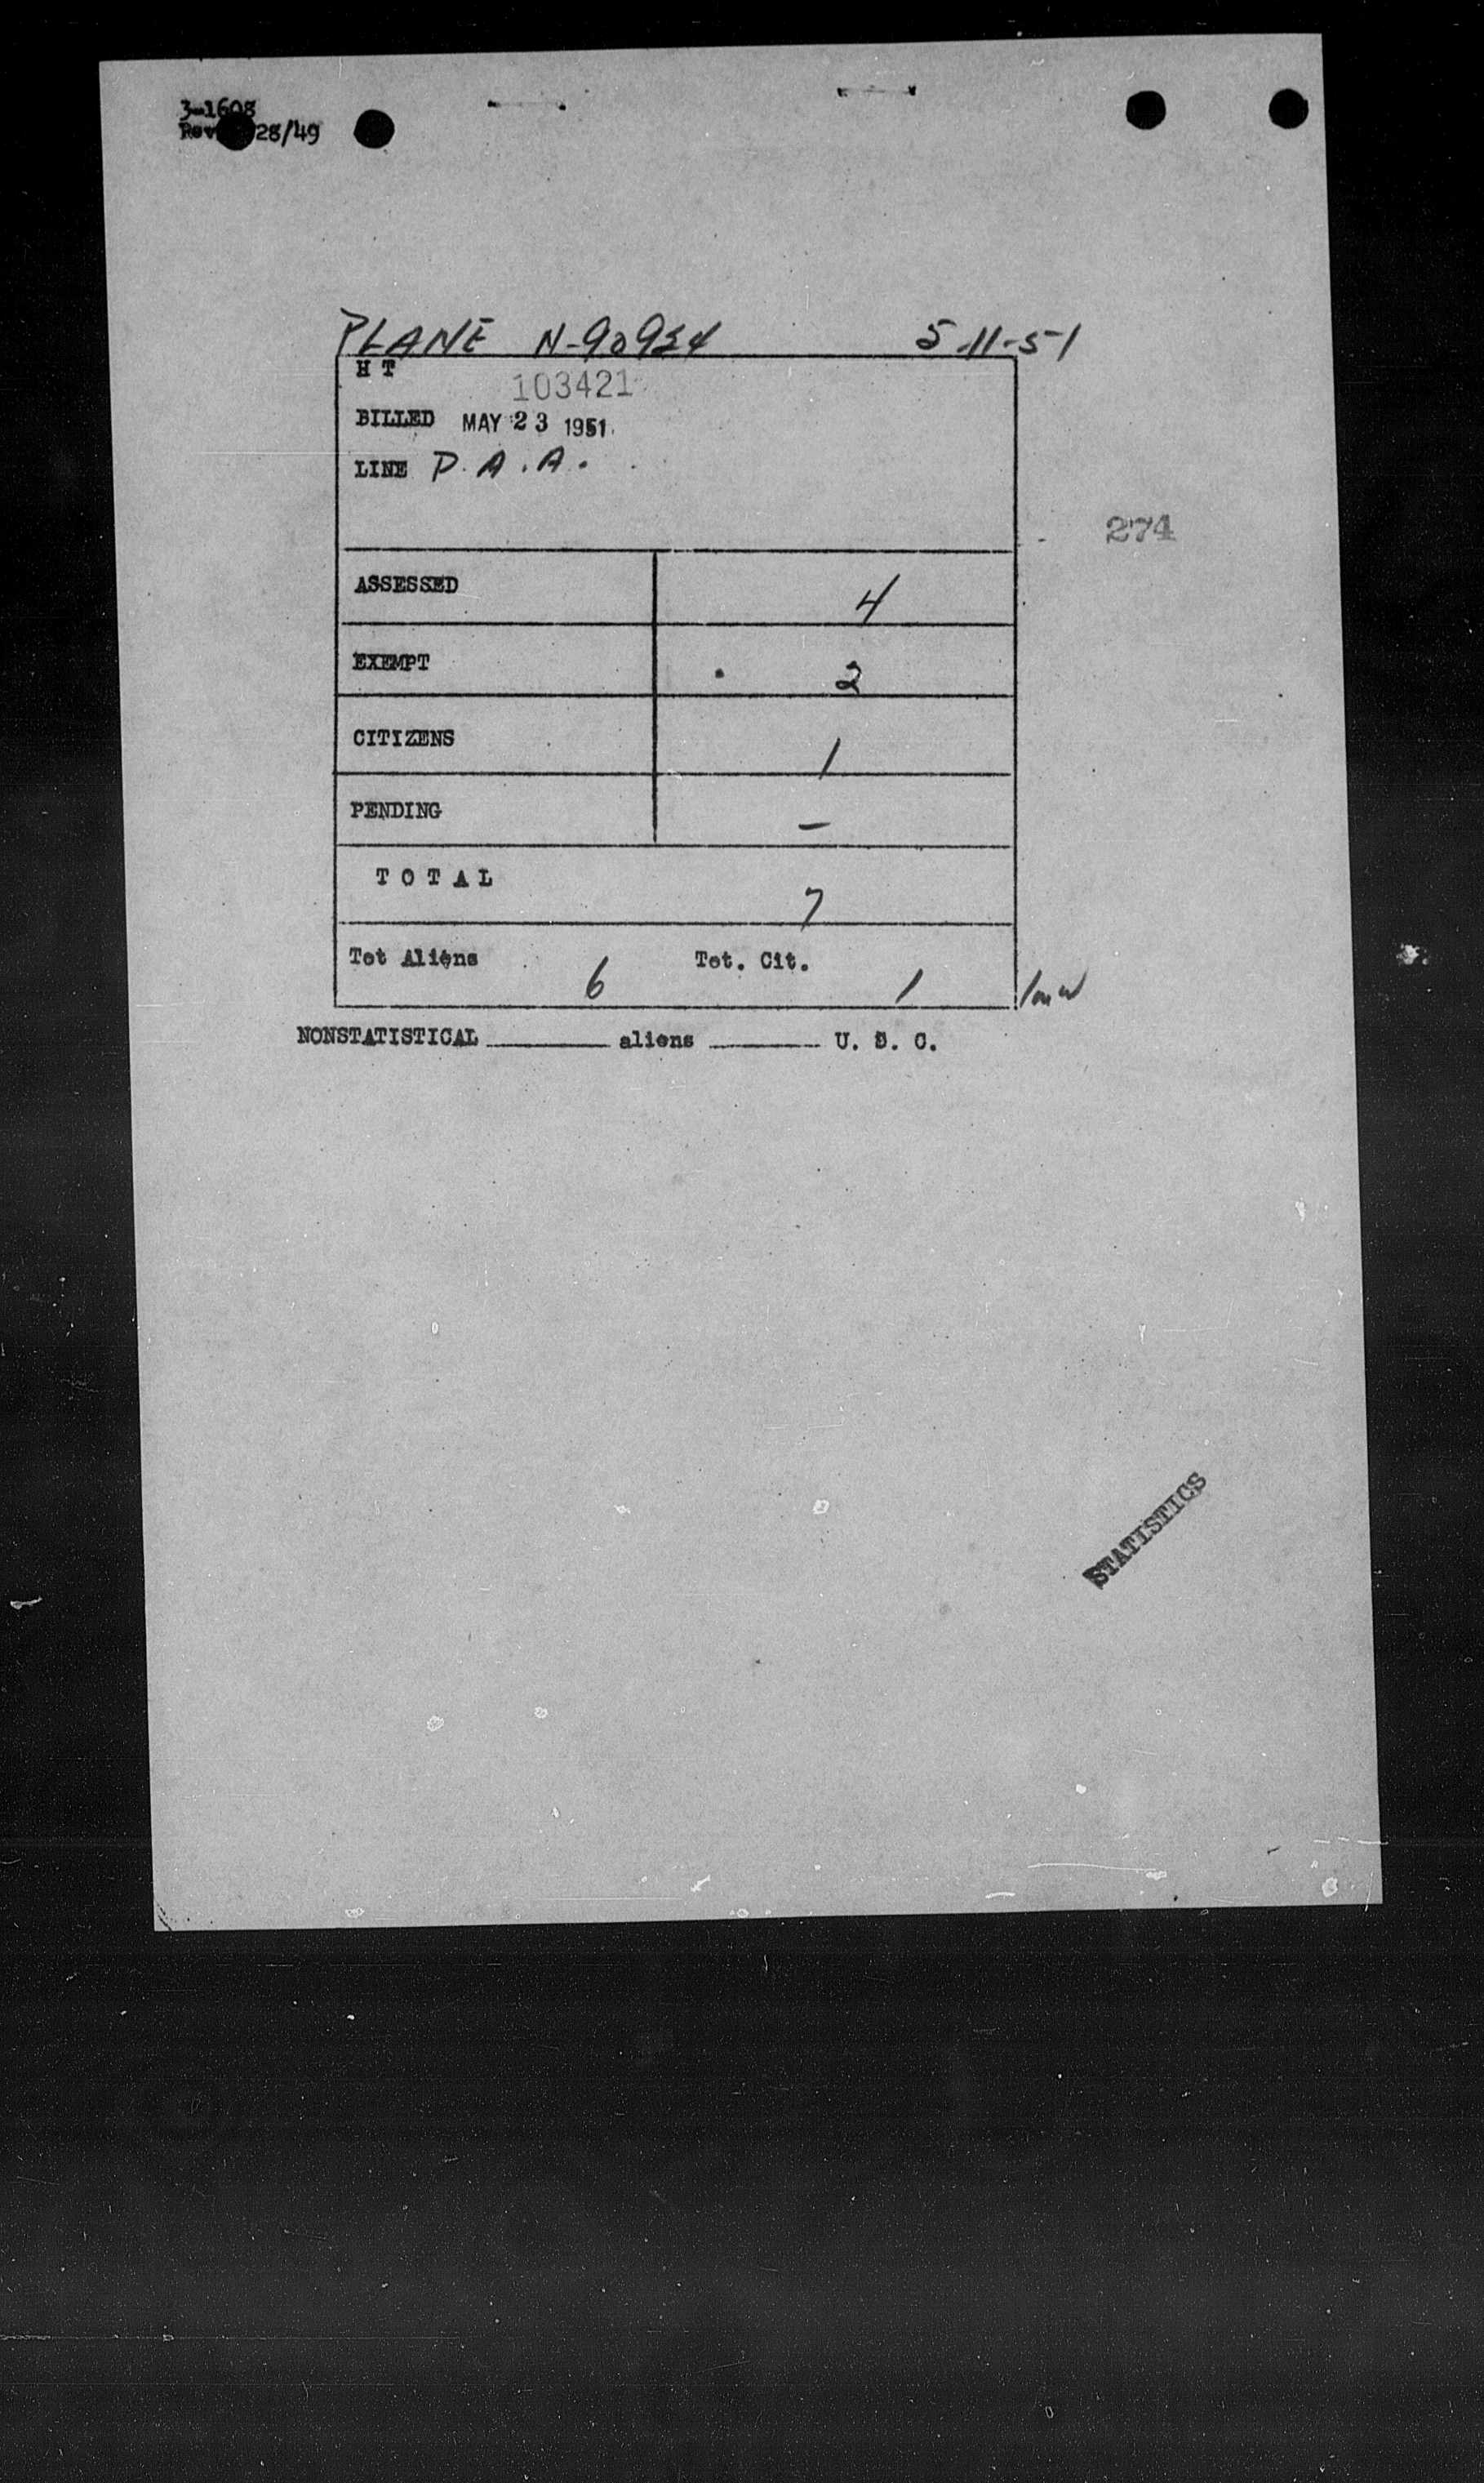 3-1608
Rev 28/49
PLANE N-90954 5-11-51
H T 103421
BILLED MAY 23 1951
LINE P.A.A.
274
ASSESSED 4
EXEMPT 2
CITIZENS 1
PENDING —
TOTAL 7
Tot Aliens 6 Tot. Cit. 1
NONSTATISTICAL ______ aliens ______ U. S. C.
STATISTICS